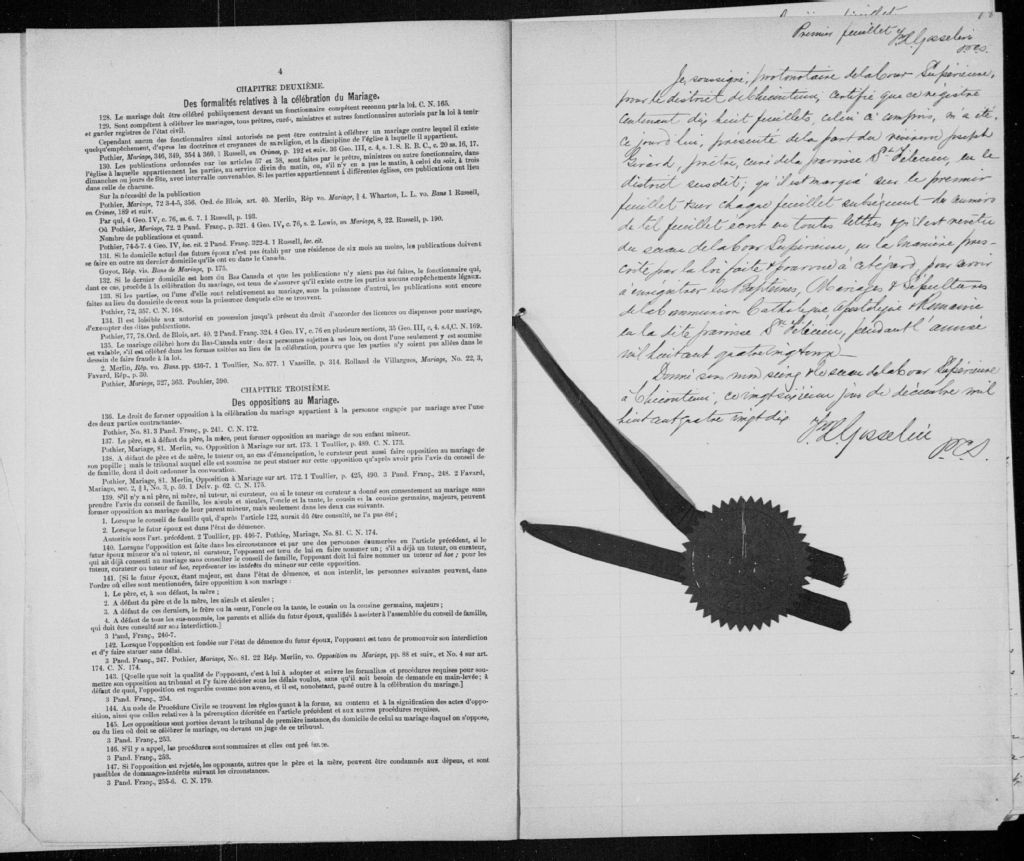 4
CHAPITRE DEUXIÈME.
Des formalités relatives à la célébration du Mariage.
128. Le mariage doit être célébré publiquement devant un fonctionnaire compétent reconnu par la loi. C. N. 165.
129. Sont compétent à célébrer les mariages, tous prêtres, curé, ministres et autres fonctionnaires autorisés par la loi à tenir
et garder registres de l'état civil.
Cependant aucun des fonctionnaires ainsi autorisés ne peut être contraint à célébrer un mariage contre lequel il existe
quelqu'empêchement, d'après les doctrines et croyances de sa religion, et la discipline de l'église à laquelle il appartient.
Pothier, Mariage, 346, 349, 354 à 360. 1 Russell, on Crimes, p. 192 et suiv. 36 Geo. III, c. 4, s. 1. S. R. B. C., c. 20 ss. 16, 17.
130. Les publications ordonnées par les articles 57 et 58, sont faites par le prêtre, ministre ou autre fonctionnaire, dans
l'église à laquelle appartiennent les parties, au service divin du matin, ou, s'il n'y en a pas le matin, à celui du soir, à trois
dimanches ou jours de fête, avec intervalle convenables. Si les parties appartiennent à différentes églises, ces publications ont lieu
dans celle de chacune.
Sur la nécessité de la publication
Pothier, Mariage, 72 3-4-5, 356. Ord. de Blois, art. 40. Merlin, Rép vo. Mariage, § 4. Wharton, L. L. vo. Bans 1 Russell,
on Crimes, 189 et suiv.
Par qui, 4 Geo. IV, c. 76, ss. 6. 7. 1 Russell, p. 193.
Où Pothier, Mariage, 72. 2 Pand. Franç. p. 321. 4 Geo. IV, c. 76, s. 2. Lewis, on Mariage, 8, 22. Russell, p. 190.
Nombre de publications et quand.
Pothier, 74-5-7. 4 Geo. IV, loc. cit. 2 Pand. Franç. 322-4. 1 Russell, loc. cit.
131. Si le domicile actuel des futurs époux n'est pas établi par une résidence de six mois au moins, les publications doivent
se faire en outre au dernier domicile qu'ils ont eu dans le Canada.
Guyot, Rép. vis. Bans de Mariage, p. 175.
132. Si le dernier domicile est hors du Bas-Canada et que les publications n'y aient pas été faites, le fonctionnaire qui,
dant ce cas, procède à la célébration du mariage, est tenu de s'assurer qu'il existe entre les parties aucuns empêchements légaux.
133. Si les parties, ou l'une d'elle sont relativement au mariage, sous la puissance d'autrui, les publications sont encore
faites au lieu du domicile de ceux sous la puissance desquels elle se trouvent.
Pothier, 72, 357. C. N. 168.
134. Il est loisible aux autorité en possession jusqu'à présent du droit d'accorder des licences ou dispenses pour mariage,
d'exempter des dites publications.
Pothier, 77, 78. Ord. de Blois, art. 40. 2 Pand. Franç. 324. 4 Geo. IV, c. 76 en plusieurs sections, 35 Geo. III, c. 4. s.4, C. N. 169.
135. Le mariage célébré hors du Bas-Canada entre deux personnes sujettes à ses lois, ou dont l'une seulement y est soumise
est valable, s'il est célébré dans les formes usitées au lieu de la célébration, pourvu que les parties n'y soient pas allées dans le
dessein de faire fraude à la loi.
2. Merlin, Rép. vo. Bans. pp. 436-7. 1 Toullier, No. 577. 1 Vaseille, p. 314. Rolland de Villargues, Mariage, No. 22, 3,
Favard, Rép., p. 30.
Pothier, Mariage, 327, 363. Pouhier, 390.
CHAPITRE TROISIÈME.
Des oppositions au Mariage.
136. Le droit de former opposition à la célébration du mariage appartient à la personne engagée par mariage avec l'une
des deux parties contractantes.
Pothier, No. 81. 3 Pand. Franç, p. 241. C. N. 172.
137. Le père, et à défaut du père, la mère, peut former opposition au mariage de son enfant mineur.
Pothier, Mariage, 81. Merlin, vo. Opposition à Mariage sur art. 173. 1 Toullier, p. 489. C. N. 173.
138. A défaut de père et de mère, le tuteur ou, au cas d'émancipation, le curateur peut aussi faire opposition au mariage de
son pupille; mais le tribunal auquel elle est soumise ne peut statuer sur cette opposition qu'après avoir pris l'avis du conseil de
famille, dont il doit ordonner la convocation.
Pothier, Mariage, 81. Merlin, Opposition à Mariage sur art. 172. 1 Toullier, p. 425, 490. 3 Pand. Franç., 248. 2 Favard,
Mariage, sec. 2, § 1, No. 3, p. 59. 1 Delv. p. 62. C. N. 175.
139. S'il n'y a ni père, ni mère, ni tuteur, ni curateur, ou si le tuteur ou curateur a donné son consentement au mariage sans
prendre l'avis du conseil de famille, les aïeuls et aïeules, l'oncle et la tante, le cousin et la cousine germains, majeurs, peuvent
former opposition au mariage de leur parent mineur, mais seulement dans les deux cas suivants.
1. Lorsque le conseil de famille qui, d'après l'article 122, aurait dû être consulté, ne l'a pas été;
2. Lorsque le futur époux est dans l'état de démence.
Autorités sous l'art. précédent. 2 Toullier, pp. 446-7. Pothier, Mariage, No. 81. C. N. 174.
140. Lorsque l'opposition est faite dans les circonstances et par une des personnes énumérées en l'article précédent, si le
futur époux mineur n'a ni tuteur, ni curateur, l'opposant est tenu de lui en faire nommer un; s'il a déjà un tuteur, ou curateur,
qui ait déjà consenti au mariage sans consulter le conseil de famille, l'opposant doit lui faire nommer un tuteur ad hoc; pour les
tuteur, curateur ou tuteur ad hoc, représenter les intérêts du mineur sur cette opposition.
141. [Si le futur époux, étant majeur, est dans l'état de démence, et non interdit, les personnes suivantes peuvent, dans
l'ordre où elles sont mentionnées, faire opposition à son mariage:
1. Le père, et, à son défaut, la mère;
2. A défaut du père et de la mère, les aïeuls et aïeules;
3. A défaut de ces derniers, le frère ou la sœur, l'oncle ou la tante, le cousin ou la cousine germains, majeurs;
4. A défaut de tous les sus-nommés, les parents et alliés du futur époux, qualifiés à assister à l'assemblée du conseil de famille,
qui doit être consulté sur son interdiction.]
3 Pand, Franç., 246-7.
142. Lorsque l'opposition est fondée sur l'état de démence du futur époux, l'opposant est tenu de promouvoir son interdiction
et d'y faire statuer sans délai.
3 Pand. Franç., 247. Pothier, Mariage, No. 81. 22 Rép. Merlin, vo. Opposition au Mariage, pp. 88 et suiv., et No. 4 sur art.
174. C. N. 174.
143. [Quelle que soit la qualité de l'opposant, c'est à lui à adopter et suivre les formalités et procédures requises pour sou-
mettre son opposition au tribunal et l'y faire décider sous les délais voulus, sans qu'il soit besoin de demande en main-levée; à
défaut de quoi, l'opposition est regardée comme non avenu, et il est, nonobstant, passé outre à la célébration du mariage.]
3 Pand. Franç., 254.
144. Au code de Procédure Civile se trouvent les règles quant à la forme, au contenu et à la signification des actes d'oppo-
sition, ainsi que celles relatives à la péremption décrétée en l'article précédent et aux autres procédures requises.
145. Les oppositions sont portées devant le tribunal de première instance, du domicile de celui au mariage duquel on s'oppose,
ou du lieu où doit se célébrer le mariage, ou devant un juge de ce tribunal.
3 Pand. Franç., 253.
146. S'il y a appel, les procédures sont sommaires et elles ont préséance.
3 Pand. Franç., 253.
147. Si l'opposition est rejetée, les opposants, autres que le père et la mère, peuvent être condamnés aux dépens, et sont
passibles de dommages-intérêts suivant les circonstances.
3 Pand. Franç., 255-6. C. N. 179.
Premier feuillet FL Gosselin
P.C.S.
Je, soussigné, protonotaire de la Cour Supérieure,
pour le district de Chicoutimi, certifie que ce régistre
contenant dix huit feuillets, celui ci compris, m'a été,
ce jourd'hui, présenté de la part du révérend Joseph
Girard, prêtre, curé de la paroisse St Félicien, en le
district susdit; qu'il est marqué sur le premier
feuillet & sur chaque feuillet subséquent du numéro
de tel feuillet écrit en toutes lettres & qu'il est revêtu
du sceau de la Cour Supérieure, en la manière pres-
crite par la loi faite & pourvue à cet égard, pour servir
à enregistrer les Baptêmes, Mariages & Sépultures
de la Communion Catholique Apostolique & Romaine
en la dite paroisse St Félicien, pendant l'année
mil huit cent quatre vingt onze
Donné sous mon seing & le sceau de la Cour Supérieure
à Chicoutimi, ce vingt sixième jour de décembre mil
huit cent quatre vingt dix
FL Gosselin
P.C.S.